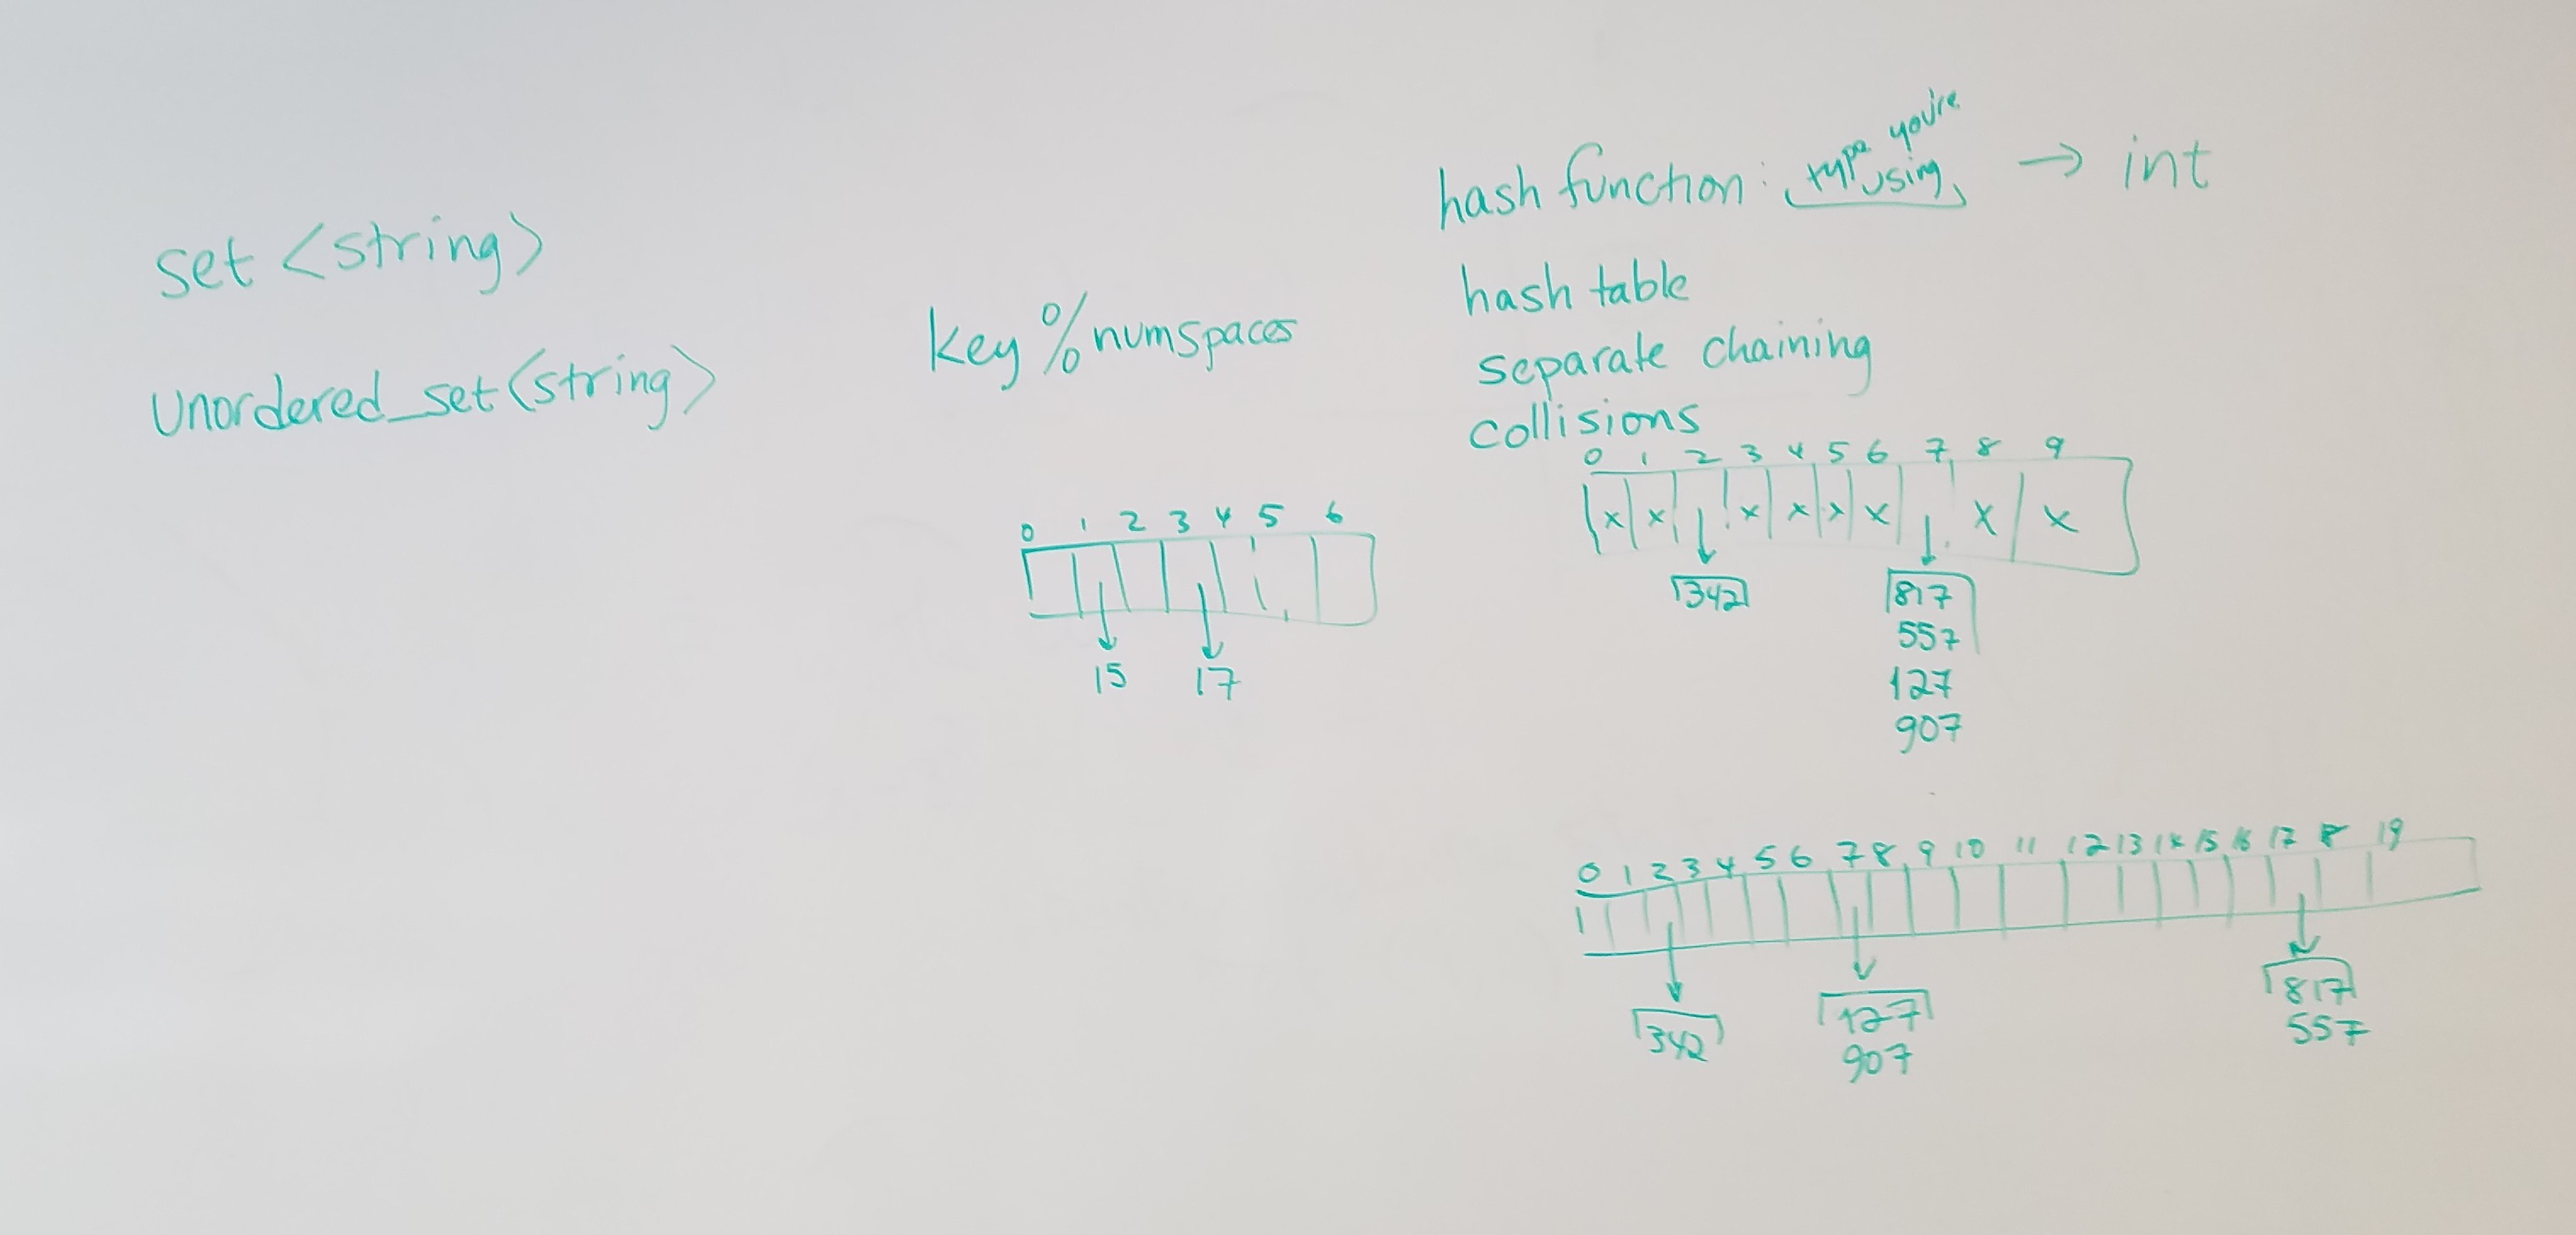 set <string>
unordered_set<string>
key % numspaces
0 1 2 3 4 5 6
15 17
hash function: type you're using → int
hash table
separate chaining
collisions
0 1 2 3 4 5 6 7 8 9
x x x x x x x x
342 817
557
127
907
0 1 2 3 4 5 6 7 8 9 10 11 12 13 14 15 16 17 8 19
342 127 817
907 557